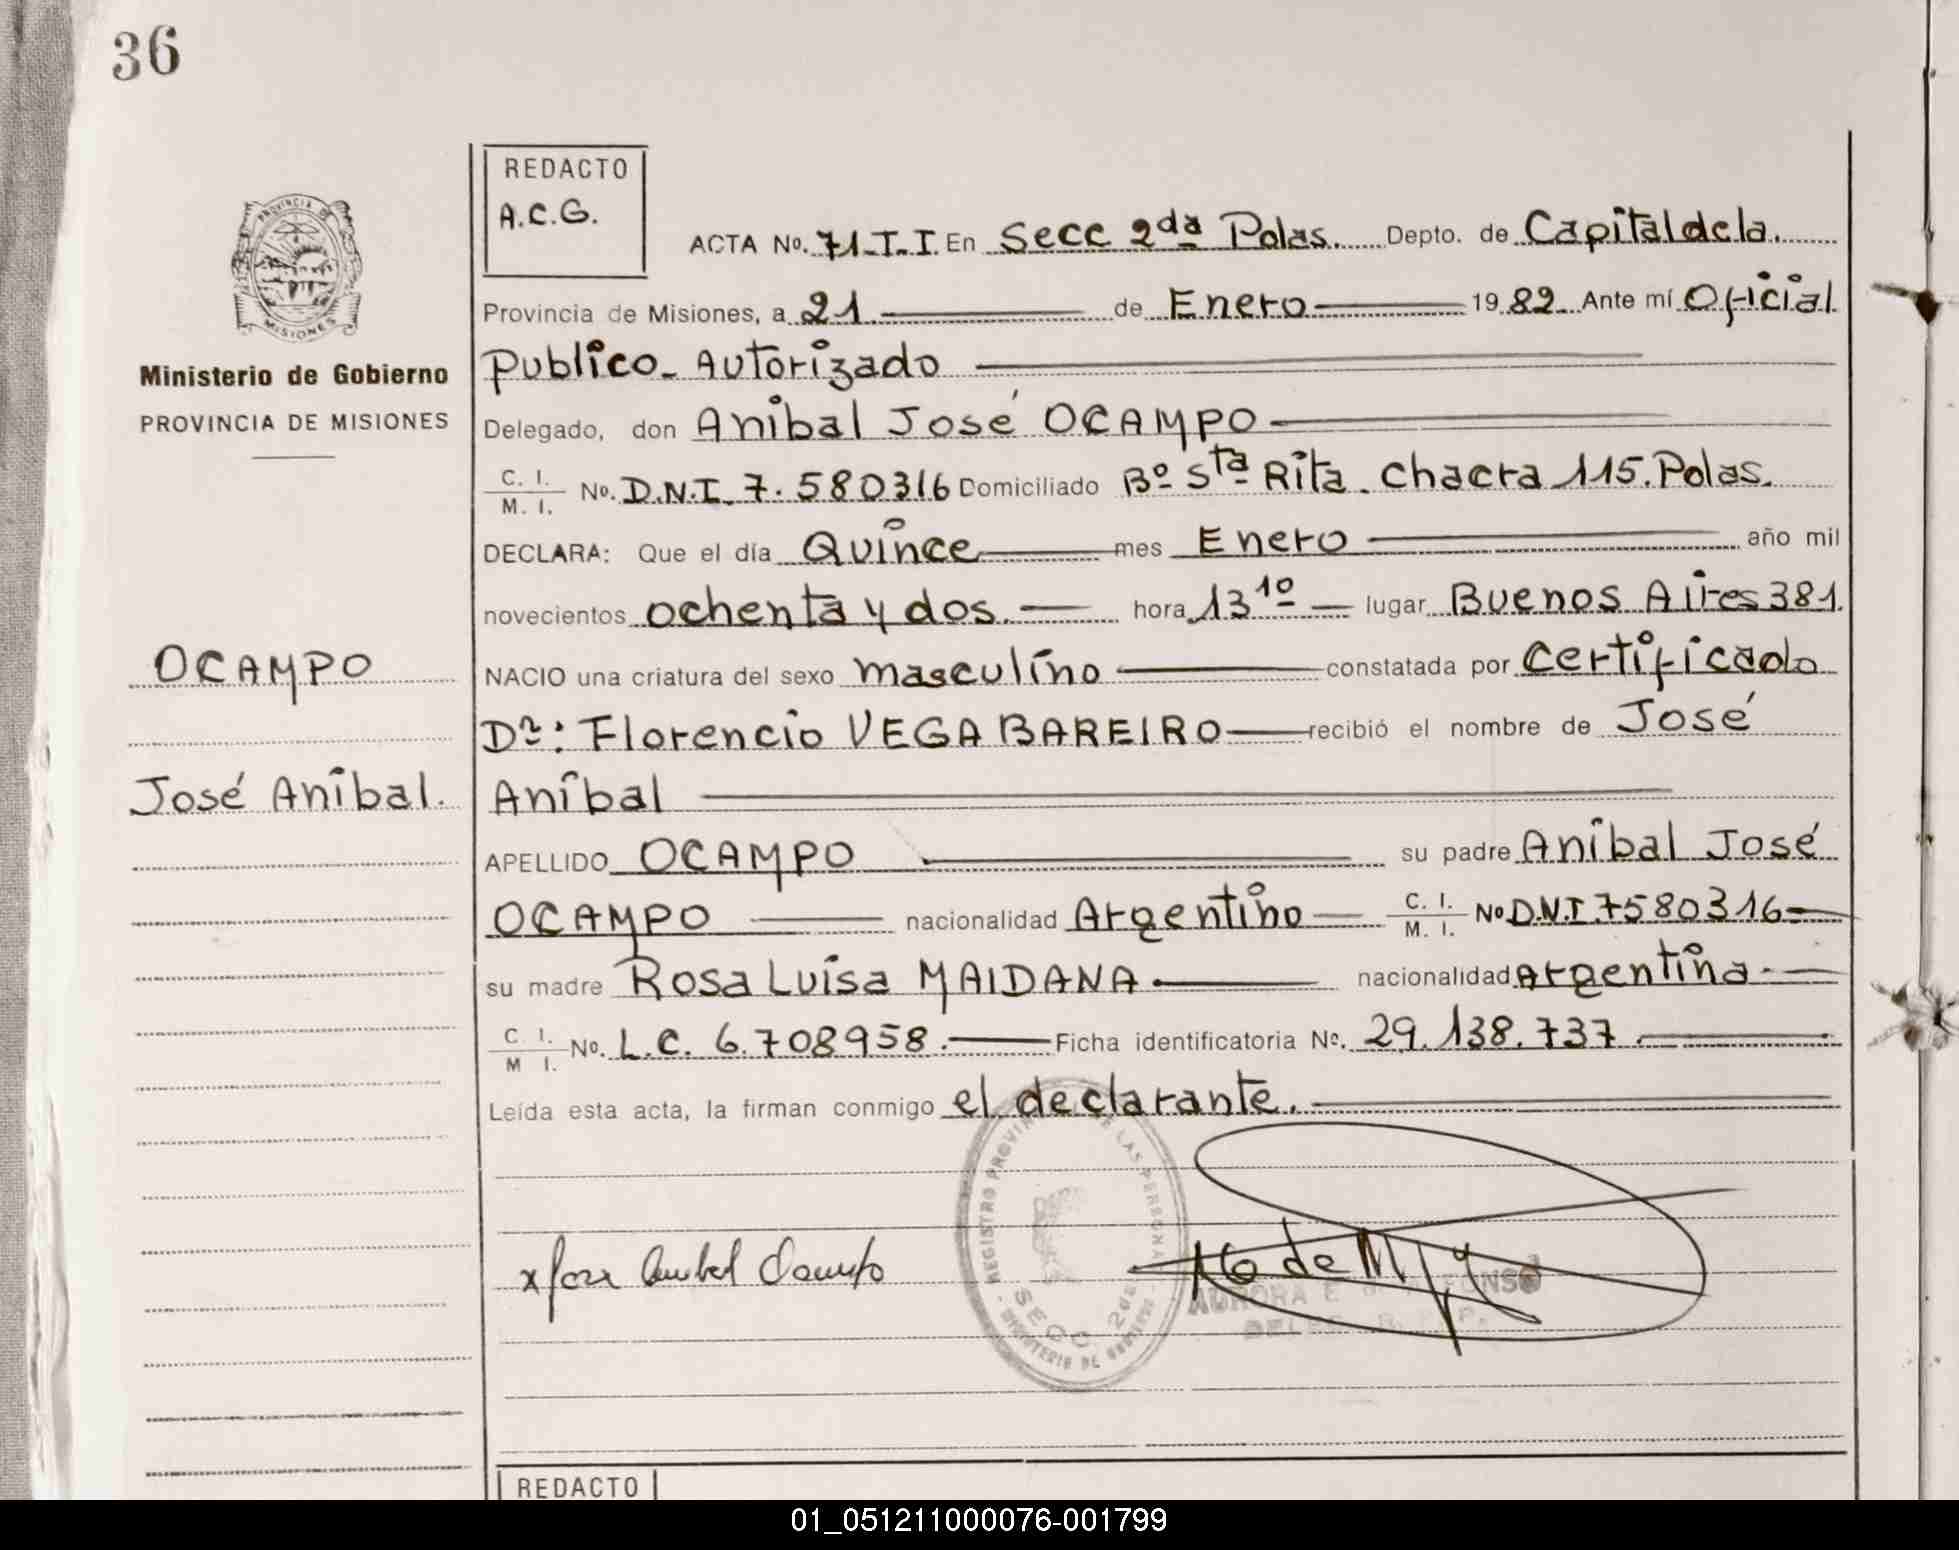 36
REDACTO
A.C.G.
PROVINCIA DE
MISIONES
Ministerio de Gobierno
PROVINCIA DE MISIONES
ACTA No. 71-T-I. En Secc 2da Polas. Depto. de Capital de la.
Provincia de Misiones, a 21 de Enero 1982 Ante mí Oficial
Publico Autorizado
Delegado, don Anibal José OCAMPO
C. I. / M. I. No. D.N.I. 7.580316 Domiciliado Bº Sta Rita. Chacra 115. Polas.
DECLARA: Que el día Quince mes Enero año mil
novecientos ochenta y dos. hora 13 10 lugar Buenos Aires 381.
OCAMPO
NACIO una criatura del sexo masculino constatada por certificado
Dr: Florencio VEGA BAREIRO recibió el nombre de José
José Anibal.
Anibal
APELLIDO OCAMPO su padre Anibal José
OCAMPO nacionalidad Argentino C. I. / M. I. No D.N.I. 7580316
su madre Rosa Luisa MAIDANA nacionalidad Argentina
C. I. / M. I. No. L.C. 6.708958. Ficha identificatoria No. 29.138.737
Leída esta acta, la firman conmigo el declarante.
REGISTRO PROVINCIAL DE LAS PERSONAS
SECC. 2da
MINISTERIO DE GOBIERNO
AURORA E
REDACTO
01_051211000076-001799